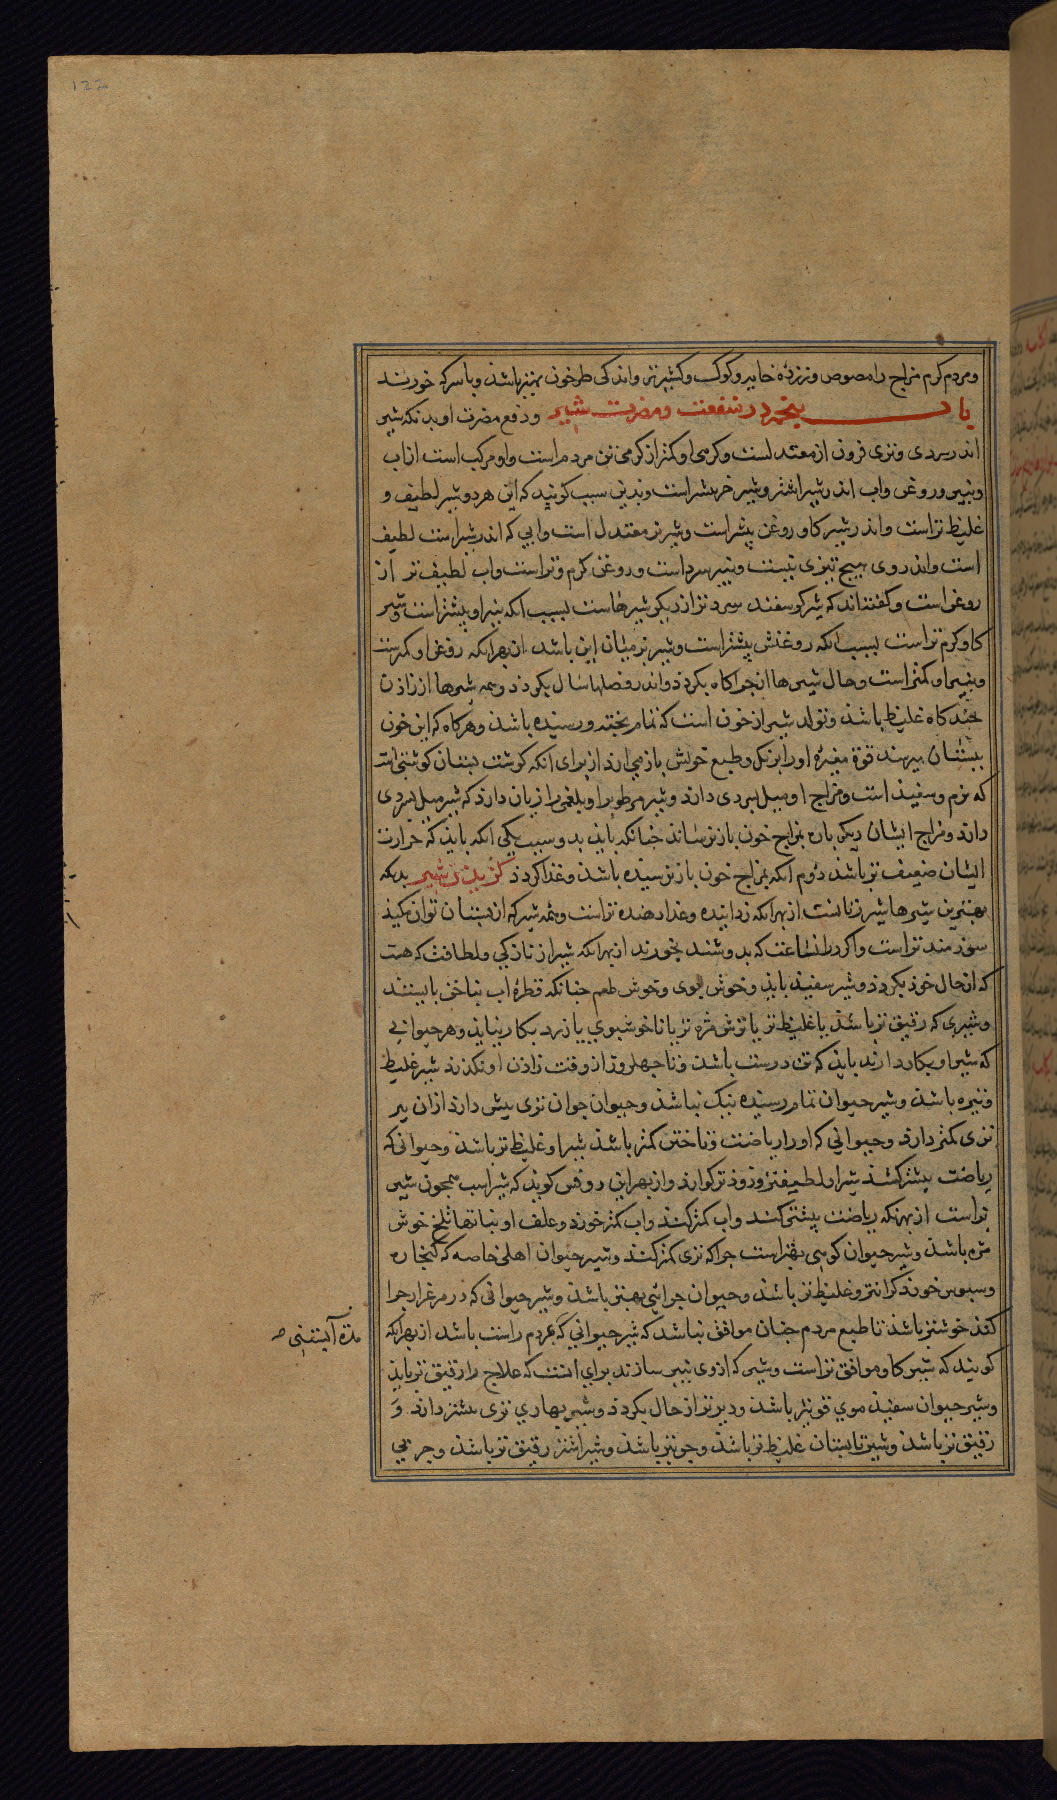 ومردم کرم مزاج را مصوص وزرده خایه وکوک وکشنیز تر واندکی طرخون بهتر باشد وبا سرکه خورند
باب پنجم در منفعت ومضرت شیر ودفع مضرت او بدانکه شیر
اندر سردی وتری فزون از معتدلست وکرمی او کمتر از کرمی تن مردم است واو مرکب است از اب
وپنیر وروغن واب اندر شیر اشتر وشیر خر بیشتر است وبدین سبب کویند که این هر دو شیر لطیف و
غلیظ تر است واندر شیر کاو روغن بیشتر است وشیر بز معتدل است وابی که اندر شیر است لطیف
است واندروی هیچ تیزی نیست وپنیر سرد است وروغن کرم وتر است واب لطیف تر از
روغن است وکفته‌اند که شیر کوسفند سرد تر از دیکر شیرهاست بسبب انکه پنیر او بیشتر است وشیر
کاو کرم تر است بسبب انکه روغنش بیشتر است وشیر بز میان این باشد از بهر انکه روغن او کمترست
وپنیر او کمتر است وحال شیرها از چراکاه بکردد واندر فصلها سال بکردد وهمه شیرها از زادن
چند کاه غلیظ باشد وتولد شیر از خون است که تمام پخته ورسیده باشد وهرکاه که این خون
ببستان برسد قوة مغیره اورا برنک وطبع خویش باز می ارد از برای انکه کوشت پستان کوشتی است
که نرم وسفید است ومزاج او میل بسردی دارد وشیر مرطوبرا وبلغمی را زیان دارد که شیر میل بسردی
دارد ومزاج ایشان دیکر باره بمزاج خون باز نرساند چنانکه باید بدو سبب یکی انکه باید که حرارت
ایشان ضعیف تر باشد دوم انکه بمزاج خون باز نرسیده باشد وغذا کردد کزیدن شیر بدانکه
بهترین شیرها شیر زنانست از بهر انکه زداینده وغذا دهنده تر است وهمه شیر که از پستان توان مکید
سودمند تر است واکر در انساعت که بدوشند بخورند از بهر انکه شیر از نازکی ولطافت که هست
که از حال خود بکردد وشیر سفید باید وخوش بوی وخوش طعم چنانکه قطرهٔ اب بناخن بایستد
وشیری که رقیق تر باشد یا غلیظ تر یا ترش مزه تر یا ناخوشبوی یا زرد بکار نیاید وهر حیوانی
که شیر او بکار دارند باید که تن درست باشد وتا چهل روز از وقت زادن او نکذرد شیر غلیظ
وتیره باشد وشیر حیوان تمام رسیده نیک نباشد وحیوان جوان تری بیش دارد از ان پیر
تری کمتر دارد وحیوانی که اورا ریاضت وتاختن کمتر باشد شیر او غلیظ تر باشد وحیوانی که
ریاضت بیشتر کشد شیر او لطیفتر وزود تر کوارد واز بهر این روفس کوید که شیر اسب همچون شیر
تر است از بهر انکه ریاضت بیشتر کند واب کمتر خورد وعلف او نباتها تلخ خوش
مزه باشد وشیر حیوان کوهی بهتر است چرا که تری کمتر کند وشیر حیوان اهلی خاصه که کنجاره
وسبوس خورد کرانتر وغلیظ تر باشد وحیوان چرایی بهتر باشد وشیر حیوانی که در مرغزار چرا
کند خوشتر باشد تا طبع مردم چنان موافق نباشد که شیر حیوانی که بمردم راست باشد از بهر انکه
کویند که شیر کاو موافق تر است وشیر که ازوی پنیر سازند برای انست که علاج را رقیق تر باید
وشیر حیوان سفید موی قوی‌تر باشد ودیرتر از حال بکردد وشیر بهاری تری بیشتر دارد و
رقیق تر باشد وشیر تابستان غلیظ تر باشد وچون پیر باشد وشیر اشتر رقیق تر باشد وچربی
مدة آبستنی صح